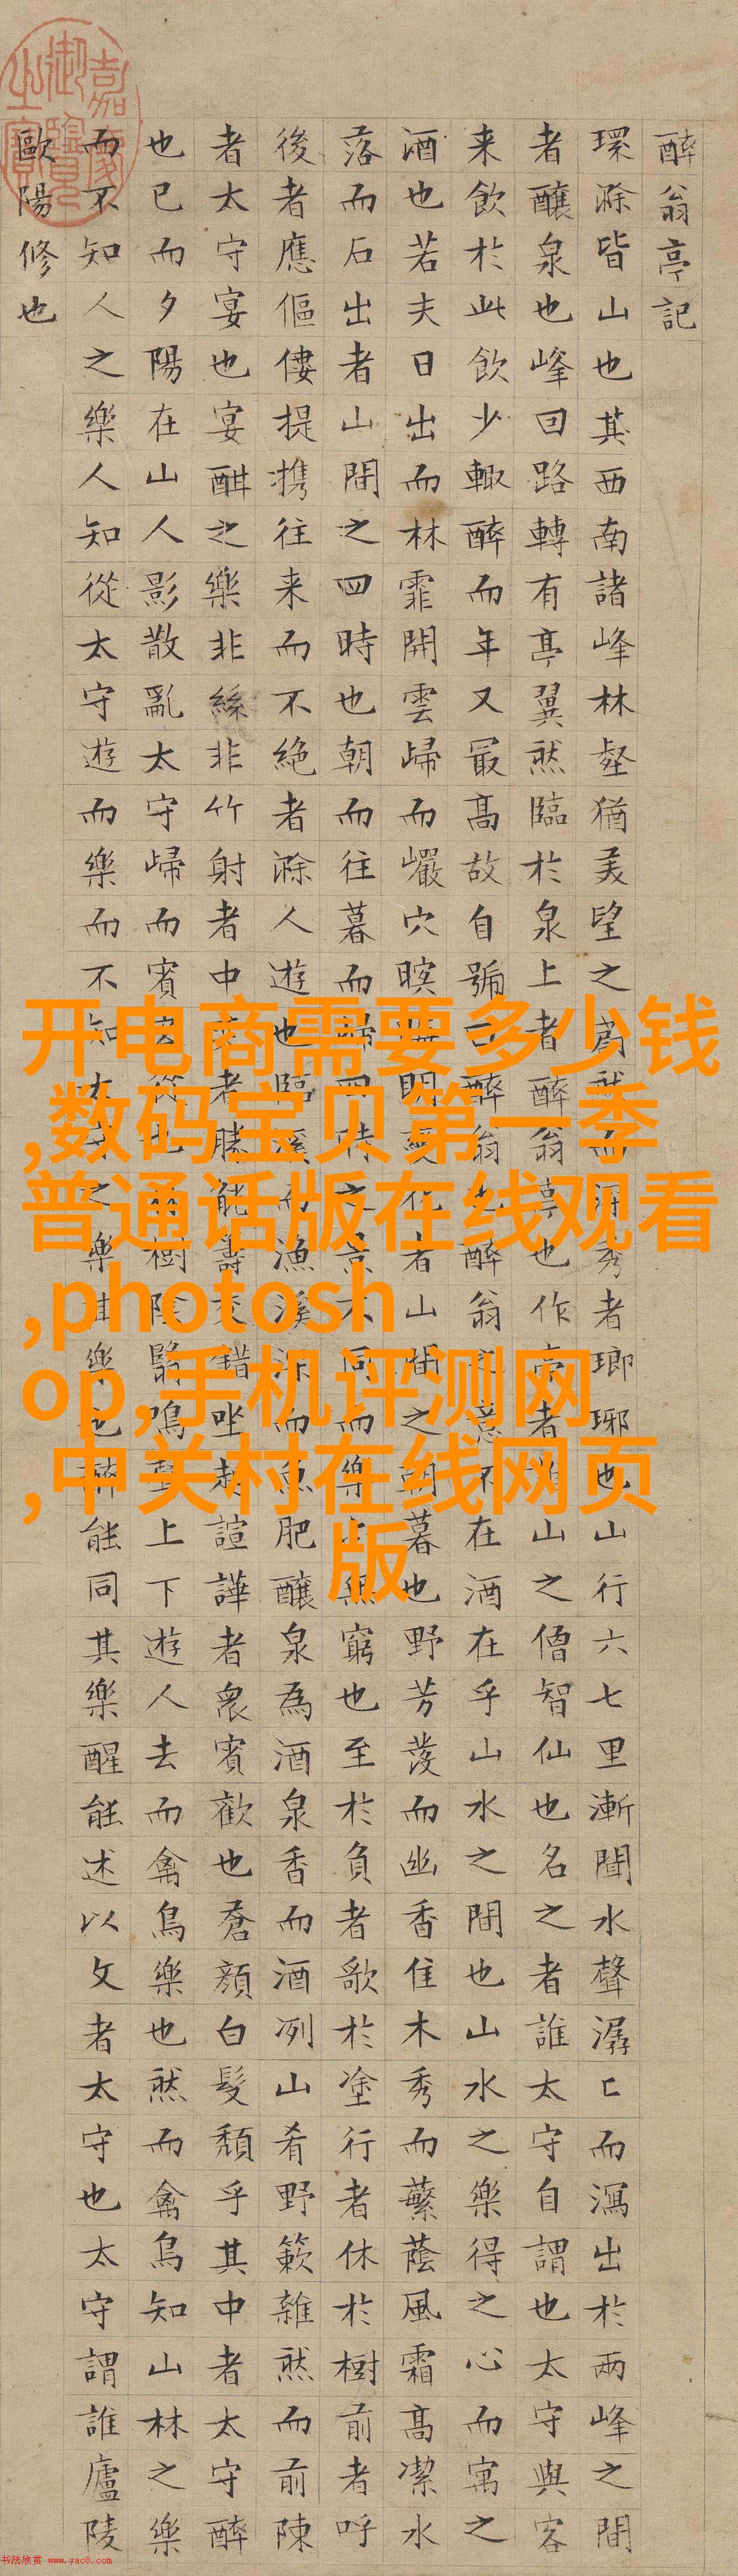 醉翁亭記
環滁皆山也其西南諸峰林壑猶美望之蔚然而深秀者瑯琊也山行六七里漸聞水聲潺匕而瀉出於兩峰之間
者釀泉也峰回路轉有亭翼然臨於泉上者醉翁亭也作亭者誰山之僧智仙也名之者誰太守自謂也太守與客
来飲於此飲少輙醉而年又最高故自號曰醉翁也醉翁之意不在酒在乎山水之間也山水之樂得之心而寓之
酒也若夫日出而林霏開雲歸而巖穴暝晦明變化者山間之朝暮也野芳發而幽香佳木秀而蘩蔭風霜高潔水
落而石出者山間之四時也朝而往暮而歸四時之景不同而樂亦無窮也至於負者歌於塗行者休於樹前者呼
後者應傴僂提携往来而不絶者滁人遊也臨溪而漁溪深而魚肥釀泉為酒泉香而酒冽山肴野簌雜然而前陳
者太守宴也宴酣之樂非絲非竹射者中奕者勝觥籌交錯坐起諠譁者衆賓歡也蒼顏白髮頹乎其中者太守醉
也已而夕陽在山人影散亂太守歸而賓客從也林樹陰翳鳴聲上下遊人去而禽鳥樂也然而禽鳥知山林之樂
而不知人之樂人知從太守遊而樂而不知太守之樂其樂也醉能同其樂醒能述以文者太守也太守謂誰廬陵
歐陽修也
嘉慶御覽之寶
开电商需要多少钱
,数码宝贝第一季
普通话版在线观看
,photosh
op,手机评测网
,中关村在线网页
版
书法欣赏 www.yac8.com